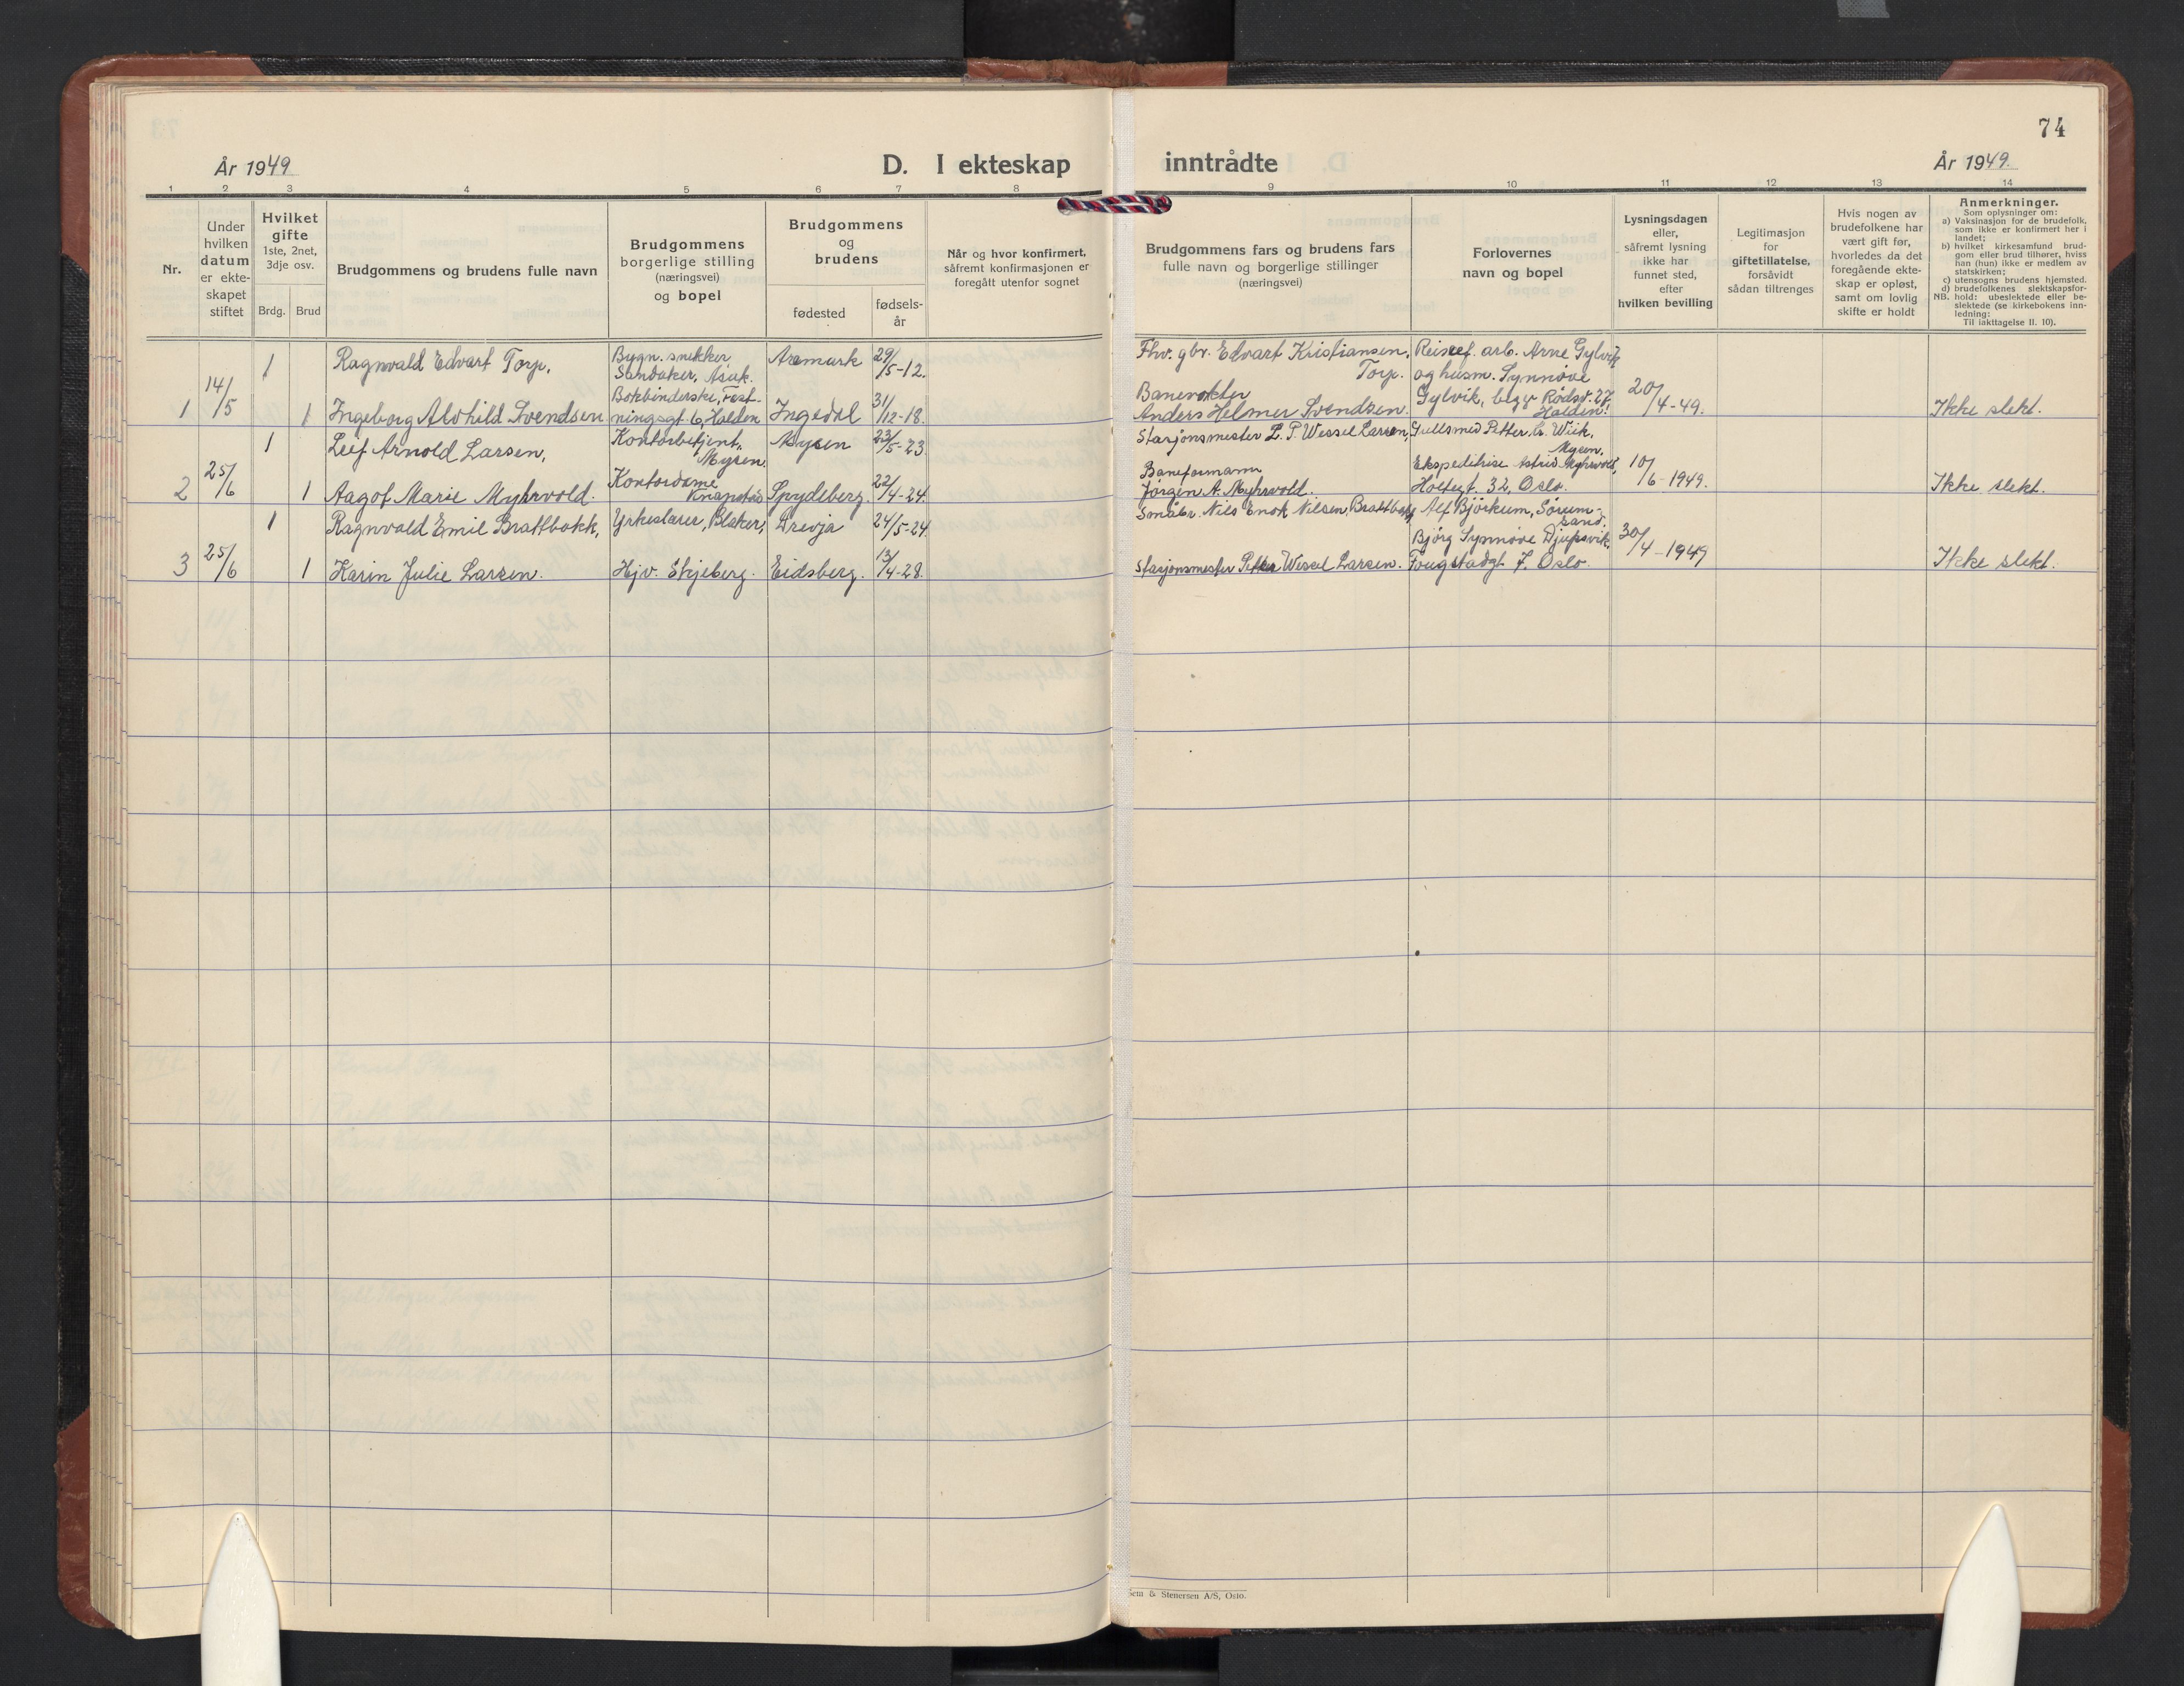 74
År 1949
D. I ekteskap inntrådte
År 1949.
1 2 3 4 5 6 7 8 9 10 11 12 13 14
Nr.
Under
hvilken
datum
er ekte-
skapet
stiftet
Hvilket
gifte
1ste, 2net,
3dje osv.
Brdg. Brud
Brudgommens og brudens fulle navn
Brudgommens
borgerlige stilling
(næringsvei)
og bopel
Brudgommens
og
brudens
fødested
fødsels-
år
Når og hvor konfirmert,
såfremt konfirmasjonen er
foregått utenfor sognet
Brudgommens fars og brudens fars
fulle navn og borgerlige stillinger
(næringsvei)
Forlovernes
navn og bopel
Lysningsdagen
eller,
såfremt lysning
ikke har
funnet sted,
efter
hvilken bevilling
Legitimasjon
for
giftetillatelse,
forsåvidt
sådan tiltrenges
Hvis nogen av
brudefolkene har
vært gift før,
hvorledes da det
foregående ekte-
skap er opløst,
samt om lovlig
skifte er holdt
Anmerkninger.
Som oplysninger om:
a) Vaksinasjon for de brudefolk,
som ikke er konfirmert her i
landet;
b) hvilket kirkesamfund brud-
gom eller brud tilhører, hviss
han (hun) ikke er medlem av
statskirken;
c) utensogns brudens hjemsted.
d) brudefolkenes slektskapsfor-
NB. hold: ubeslektede eller be-
slektede (se kirkebokens inn-
ledning:
Til iakttagelse II. 10).
1
14/5
1
Ragnvald Edvart Torp,
Bygn. snekker
Sandaker, Asak.
Aremark
29/5-12.
Fhv. gbr. Edvart Kristiansen,
Torp.
Reiseef. arb. Arne Gylvik
og husm. Synnøve
Gylvik, begge Rødsv. 27,
Halden.
20/4-49.
Ikke slekt.
1
Ingeborg Alvhild Svendsen
Bokbinderske, Fest-
ningsgt. 6, Halden
Ingedal
31/12-18.
Banevokter
Anders Helmer Svendsen.
2
25/6
1
Leif Arnold Larsen,
Kontorbetjent,
Mysen.
Mysen
23/5-23.
Stasjonsmester L. P. Wessel Larsen,
Gullsmed Petter. Cr. Wiik,
Mysen,
Ekspeditrise Astrid Myhrvold,
Holtegt. 32, Oslo.
10/6-1949.
Ikke slekt.
1
Aagot Marie Myhrvold.
Kontordame
Knapstad
Spydeberg.
22/4-24.
Baneformann
Jørgen A. Myhrvold.
3
25/6
1
Ragnvald Emil Brattbakk,
Yrkeslærer, Blaker,
Drevja
24/5-24.
Småbr. Nils Enok Nilsen, Brattbakk
Alf Bjørkum, Sørum-
sand.
Bjørg Synnøve Djupsvik,
Fougstadgt. 7. Oslo.
30/4-1949
Ikke slekt.
1
Karin Julie Larsen.
Hjv. Skjeberg.
Eidsberg.
13/4-28.
Stasjonsmester Petter Wessel Larsen.
Sem & Stenersen A/S, Oslo.